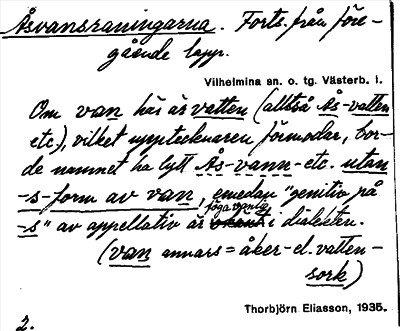 Åsvansraningarna. Forts. från före-
gående lapp.
Vilhelmina sn. o. tg. Västerb. l.
Om van här är vatten (alltså Ås-vatten
etc.), vilket upptecknaren förmodar, bor-
de namnet ha lytt Ås-vann-etc. utan
-s-form av van, emedan "genitiv på
föga vanlig
-s" av appellativ är okänt i dialekten.
(van annars = åker- el. vatten-
sork)
Thorbjörn Eliasson, 1935.
2.